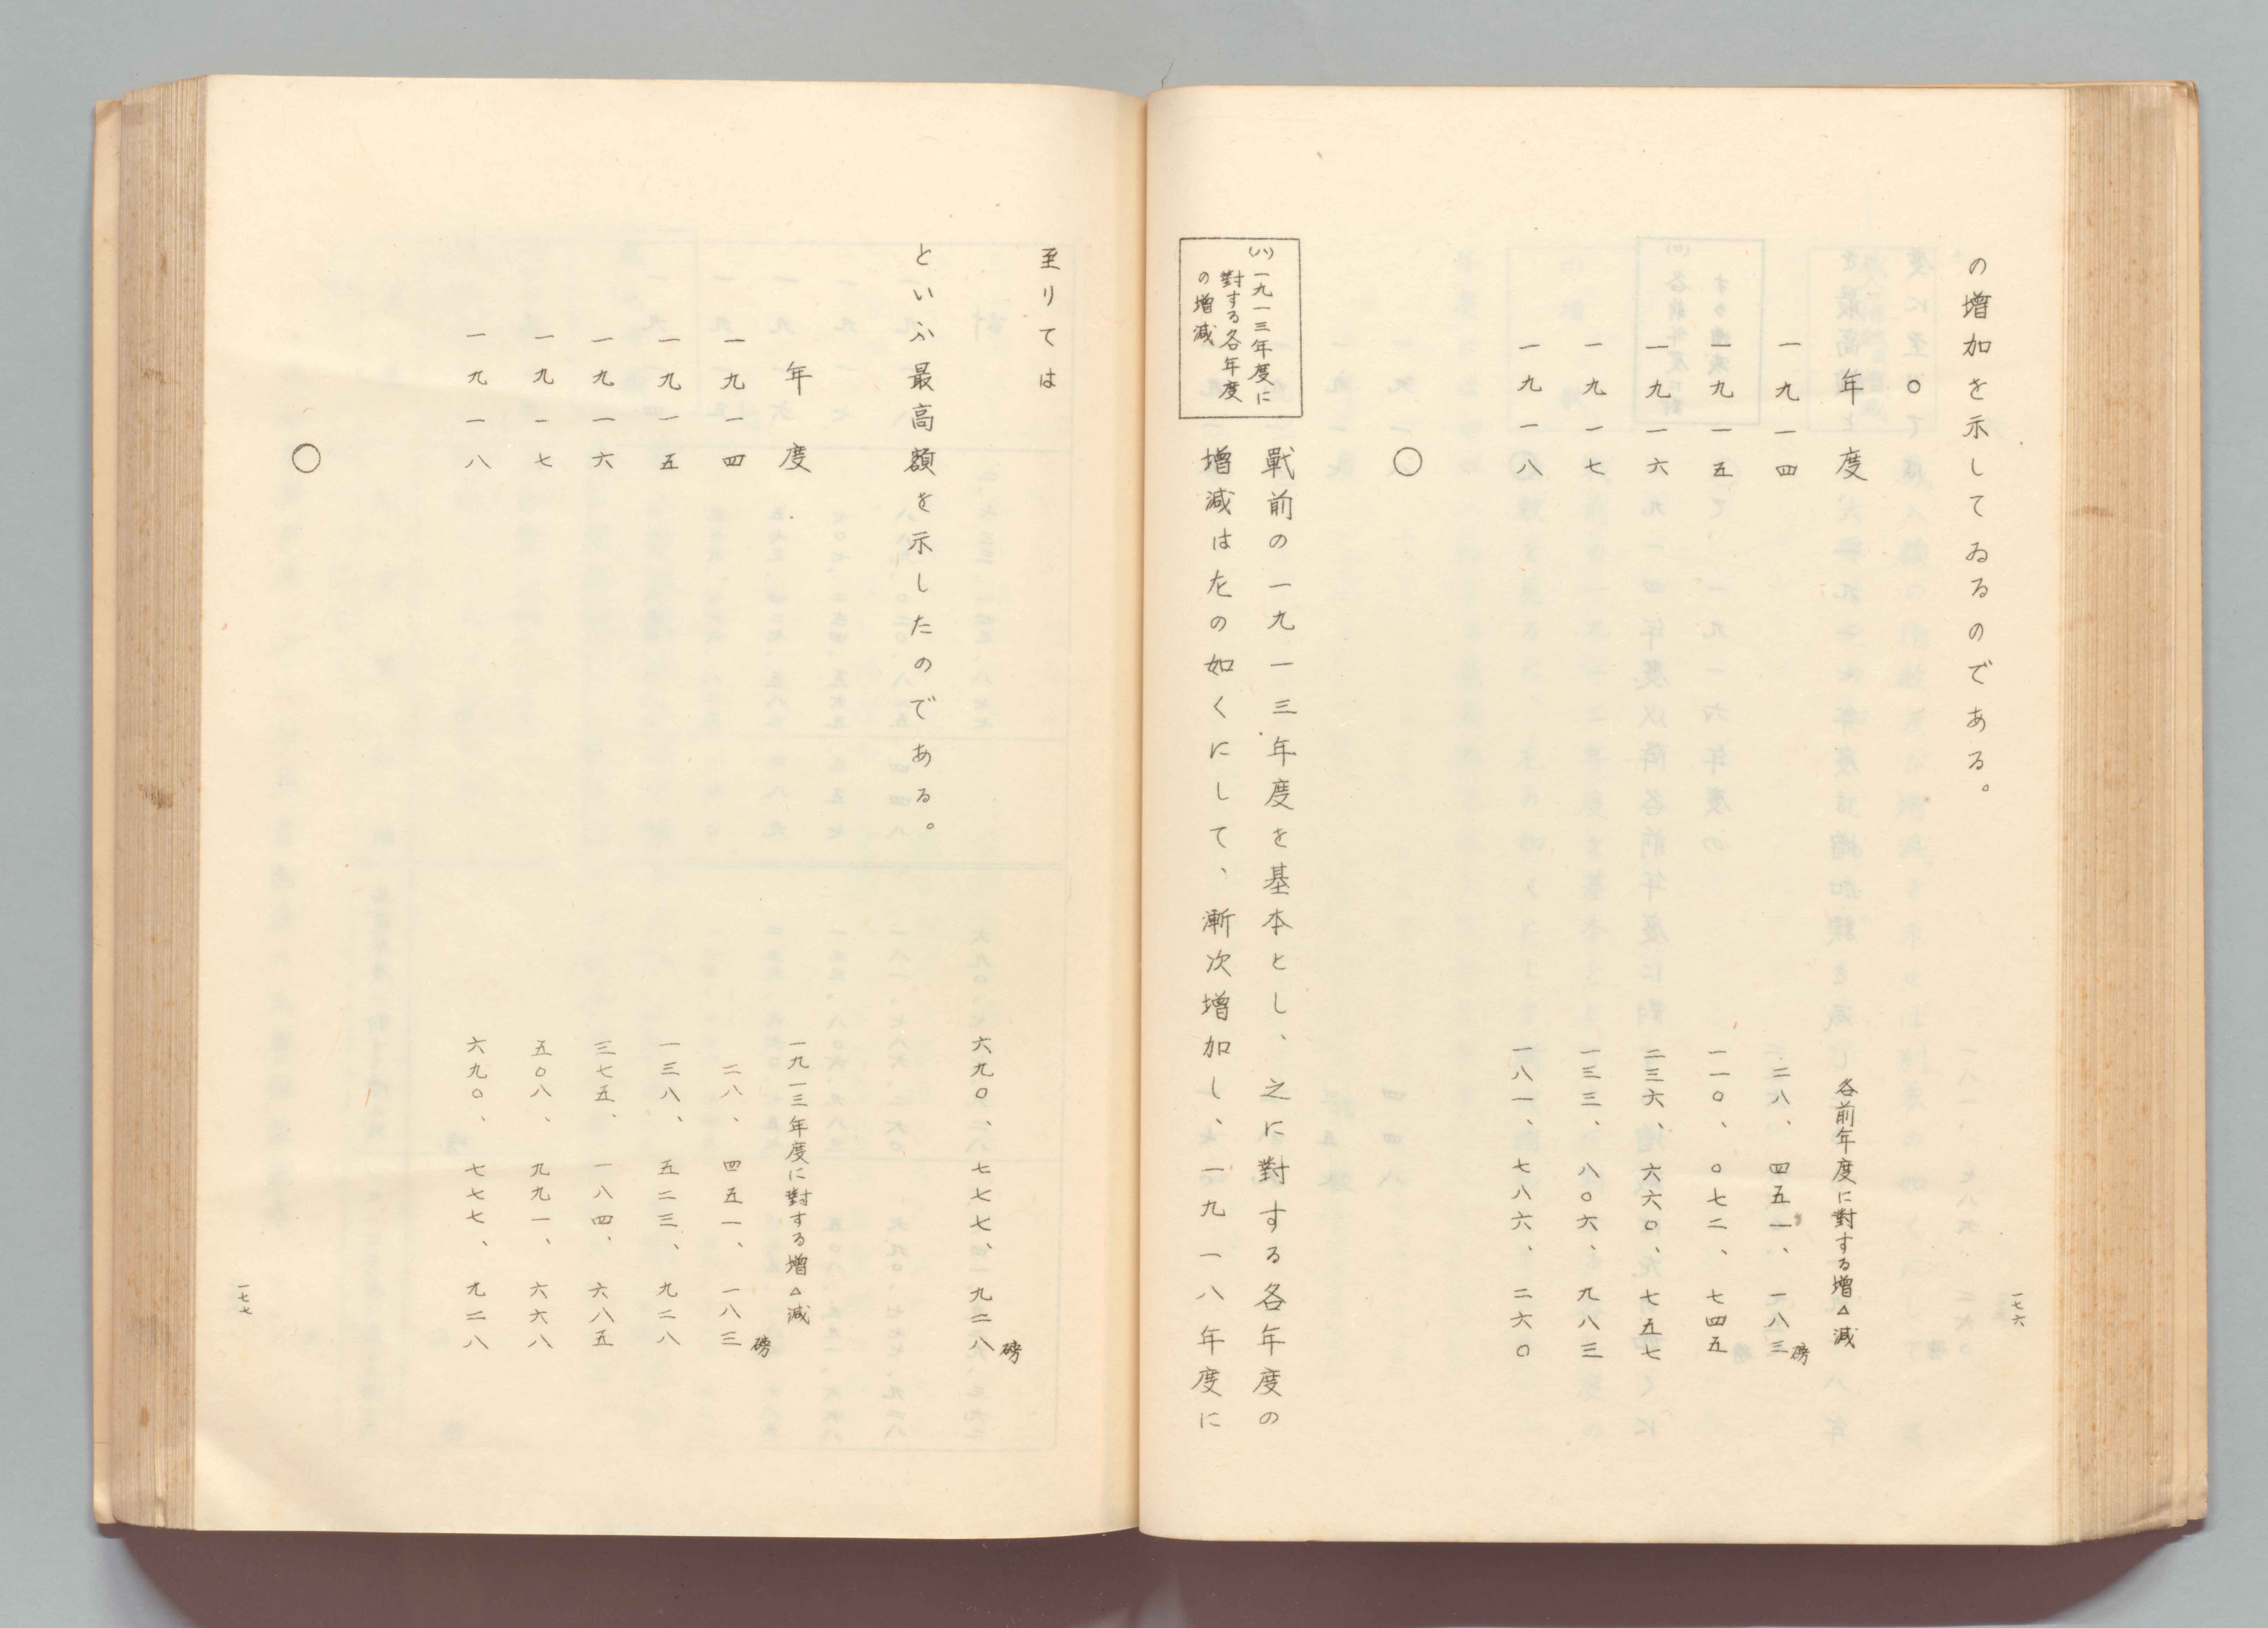 の増加を示してゐるのである。
○
年度　各前年度に對する増△減
一九一四　二八、四五一、一八三磅
一九一五　一一〇、〇七二、七四五
一九一六　二三六、六六〇、七五七
一九一七　一三三、八〇六、九八三
一九一八　一八一、七八六、二六〇
○
(ハ)一九一三年度に
對する各年度
の増減
戰前の一九一三年度を基本とし、之に對する各年度の
増減は左の如くにして、漸次増加し、一九一八年度に
一七六
至りては
六九〇、七七七、九二八磅
といふ最高額を示したのである。
年度　一九一三年度に對する増△減
一九一四　二八、四五一、一八三磅
一九一五　一三八、五二三、九二八
一九一六　三七五、一八四、六八五
一九一七　五〇八、九九一、六六八
一九一八　六九〇、七七七、九二八
○
一七七